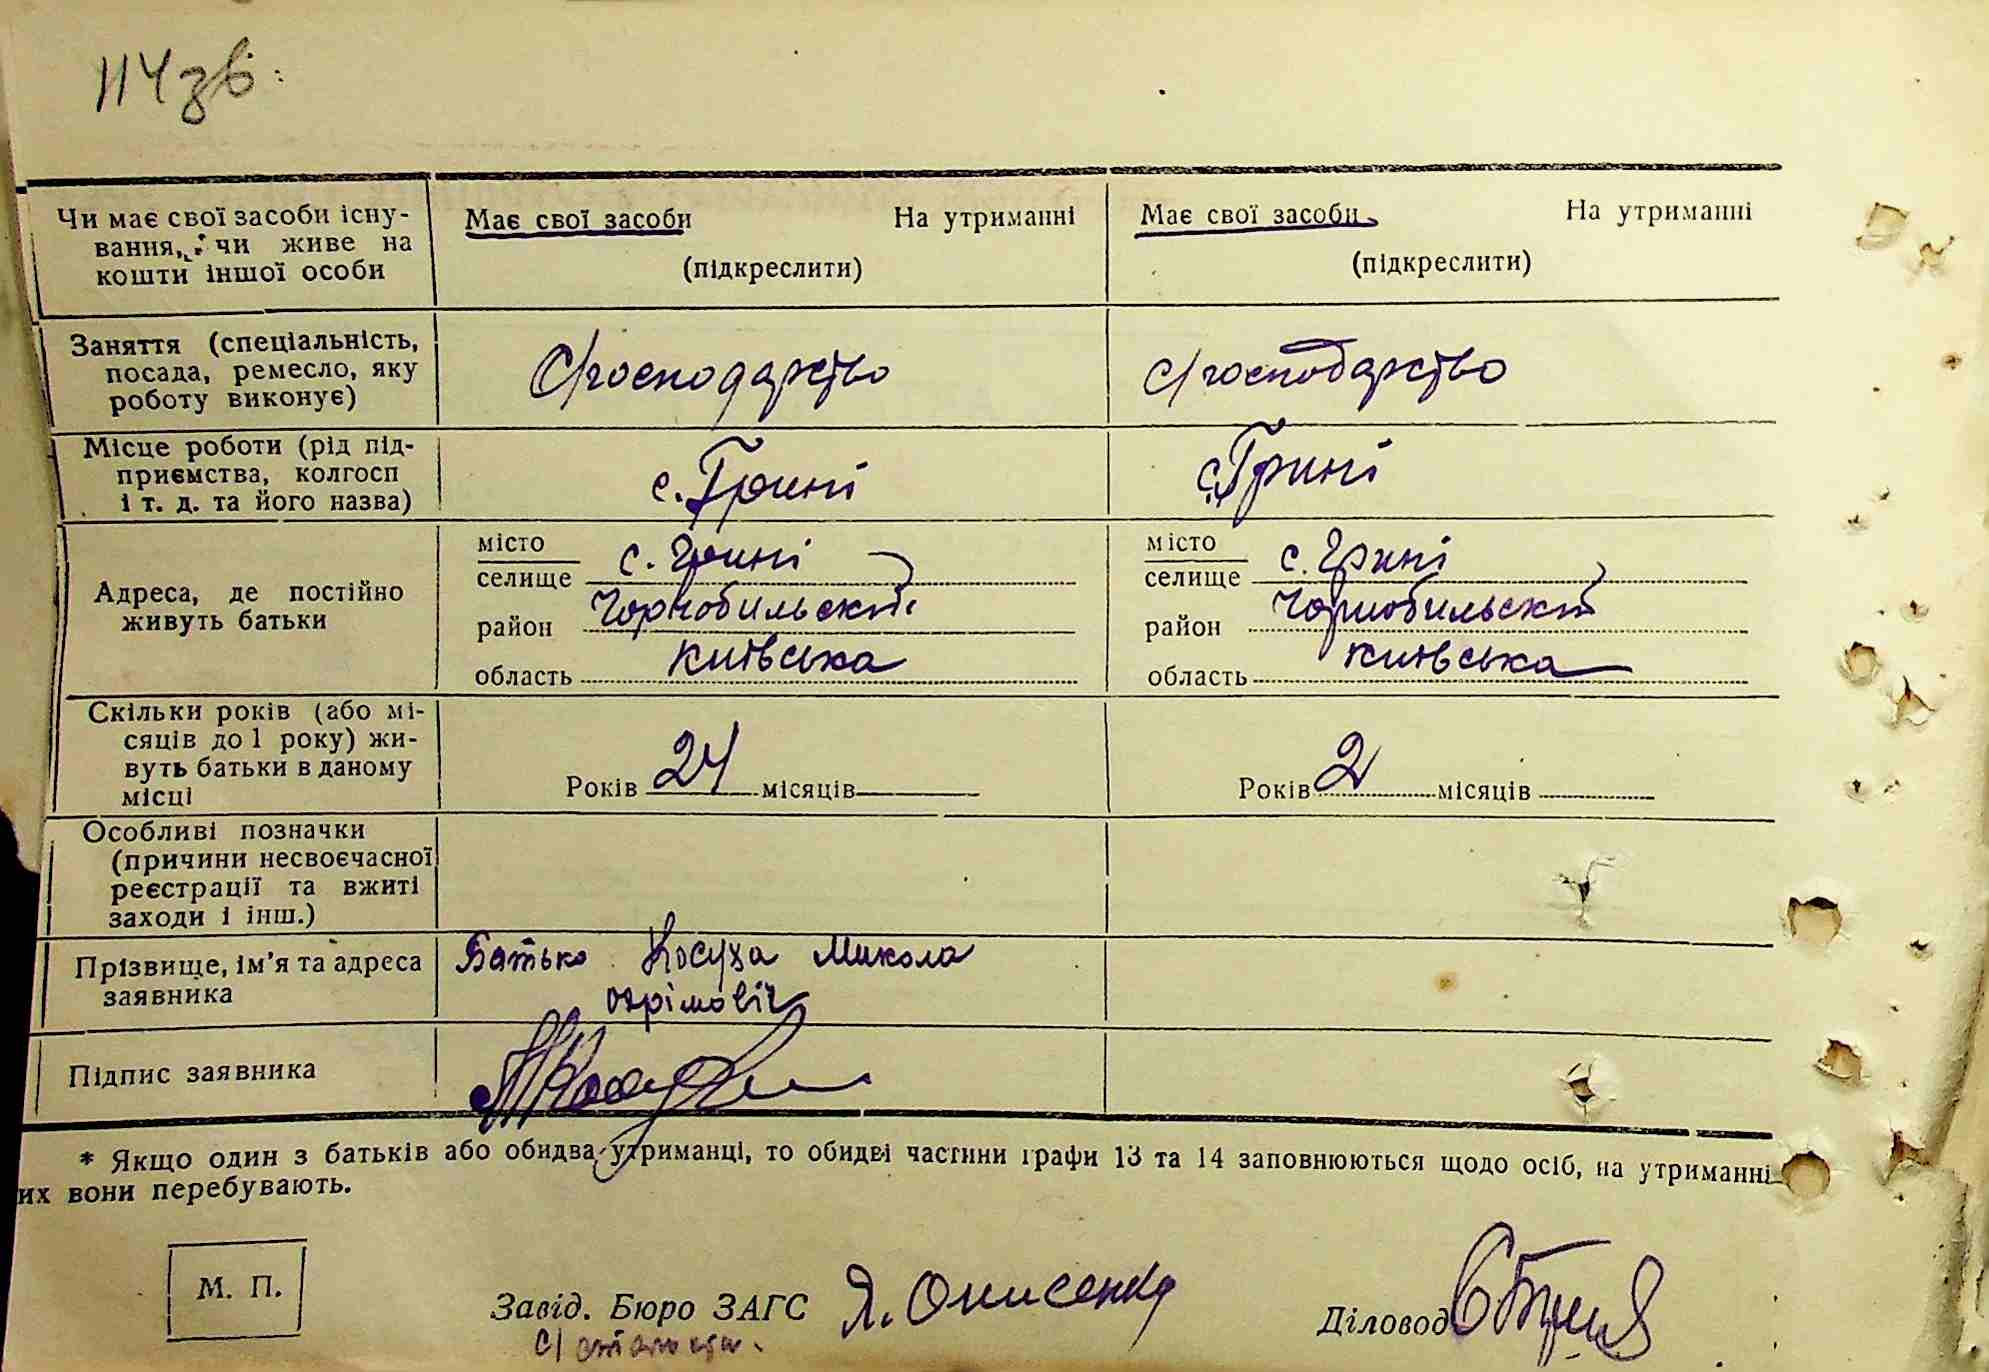 114 зв.
Чи має свої засоби існу-
вання, чи живе на
кошти іншої особи
Має свої засоби На утриманні
(підкреслити)
Має свої засоби На утриманні
(підкреслити)
Заняття (спеціальність,
посада, ремесло, яку
роботу виконує)
С/господарство
с/господарство
Місце роботи (рід під-
приємства, колгосп
і т. д. та його назва)
с. Грині
с. Грині
Адреса, де постійно
живуть батьки
місто
селище с. Грині
район Чорнобильский
область Київська
місто
селище с. Грині
район Чорнобильский
область Київська
Скільки років (або мі-
сяців до 1 року) жи-
вуть батьки в даному
місці
Років 24 місяців
Років 2 місяців
Особливі позначки
(причини несвоєчасної
реєстрації та вжиті
заходи і інш.)
Прізвище, ім'я та адреса
заявника
Батько Косуха Микола
Підпис заявника
* Якщо один з батьків або обидва утриманці, то обидві частини графи 13 та 14 заповнюються щодо осіб, на утриманні
их вони перебувають.
М. П.
Завід. Бюро ЗАГС Я. Онисенко
Діловод